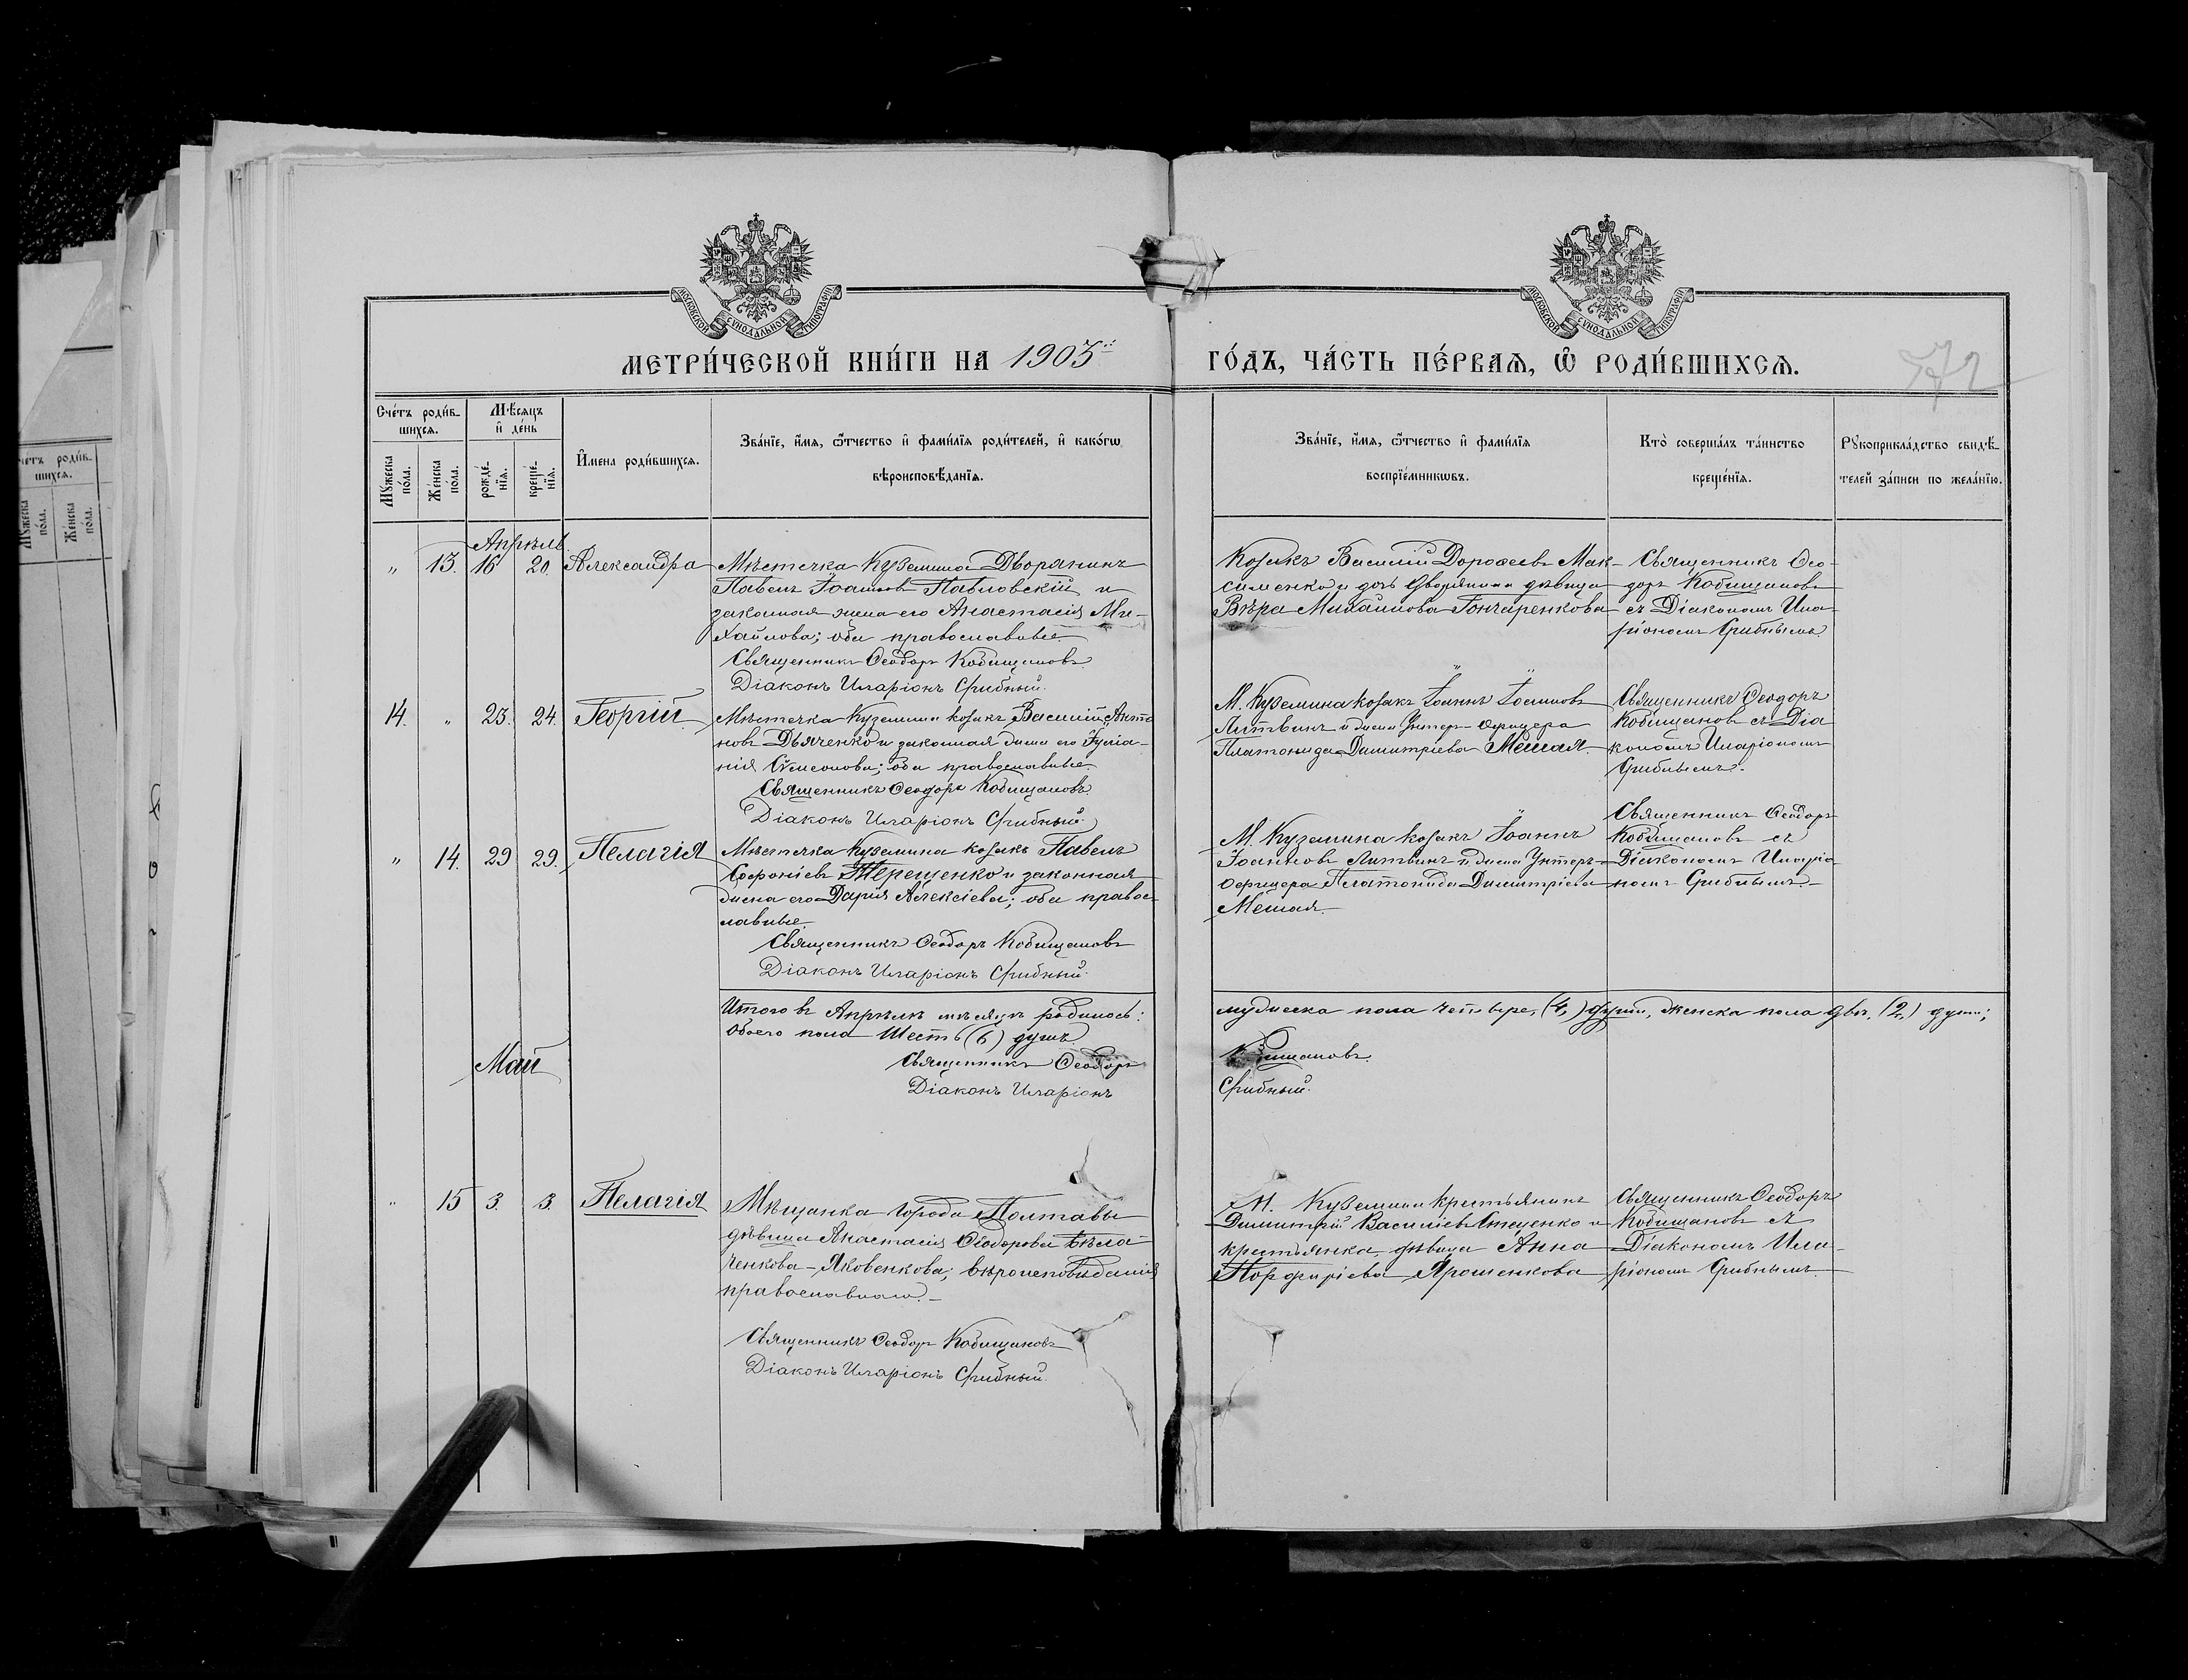 МОСКОВСКОЙ СѴНОДАЛЬНОЙ ТИПОГРАФІИ
МОСКОВСКОЙ СѴНОДАЛЬНОЙ ТИПОГРАФІИ
МЕТРИ́ЧЕСКОЙ КНИ́ГИ НА 1905й ГО́ДЪ, ЧА́СТЬ ПЕ́РВАѦ, Ѡ РОДИ́ВШИХСѦ.
572
Сче́тъ роди́в-
шихсѧ.
Мꙋ́жеска
по́ла.
Же́нска
по́ла.
Мѣ́сѧцъ
и҆ де́нь
рожде́-
нїѧ.
креще́-
нїѧ.
И҆мена роди́вшихсѧ.
Зва́нїе, и҆́мѧ, ѻ҆́тчество и҆ фами́лїѧ роди́телей, и҆ како́гѡ
вѣроисповѣ́данїѧ.
Зва́нїе, и҆́мѧ, ѻ҆́тчество и҆ фами́лїѧ
воспрїе́мникѡвъ.
Кто̀ соверша́лъ та́инство
креще́нїѧ.
Рꙋкоприкла́дство свидѣ́-
телей за́писи по жела́нїю.
Апрѣль
" 13. 16 20. Александра
Мѣстечка Куземина Дворянинъ
Павелъ Іоанновъ Павловскій и
законная жена его Анастасія Ми-
хайлова; оба православные
Священникъ Ѳеодоръ Кобищановъ
Діаконъ Иларіонъ Срибный.
Козакъ Василій Дороѳеевъ Мак-
сименко и дочь дворянина дѣвица
Вѣра Михайлова Гончаренкова
Священникъ Ѳео-
доръ Кобищановъ
съ Діакономъ Ила-
ріономъ Срибнымъ
14. " 23. 24. Георгій
Мѣстечка Куземина козакъ Василій Анто
новъ Дьяченко и законная жена его Іуліа-
нія Сѷмеонова; оба православные
Священникъ Ѳеодоръ Кобищановъ
Діаконъ Иларіонъ Срибный.
М. Куземина козакъ Іоаннъ Іоанновъ
Литвинъ и жена Унтеръ-Офицера
Платонида Димитріева Мешая.
Священникъ Ѳеодоръ
Кобищановъ съ Діа
кономъ Иларіономъ
Срибнымъ.
" 14. 29 29. Пелагія
Мѣстечка Куземина козакъ Павелъ
Софоніевъ Терещенко и законная
жена его Дарія Алексіева; оба правос-
лавные
Священникъ Ѳеодоръ Кобищановъ
Діаконъ Иларіонъ Срибный.
М. Куземина козакъ Іоаннъ
Іоанновъ Литвинъ и жена Унтеръ-
Офицера Платонида Димитріева
Мешая.
Священникъ Ѳеодоръ
Кобищановъ съ
Діакономъ Иларіо-
номъ Срибнымъ
Итого въ Апрѣлѣ мѣсяцѣ родилось: мужеска пола четыре, (4,) души, женска пола двѣ, (2,) души;
Обоего пола Шесть (6) душъ.
Священникъ Ѳеодоръ Кобищановъ.
Діаконъ Иларіонъ Срибный.
Май
" 15 3. 3. Пелагія
Мѣщанка города Полтавы
дѣвица Анастасія Ѳеодорова Бѣла-
ченкова-Яковенкова; вѣроисповѣданія
православнаго.
Священникъ Ѳеодоръ Кобищановъ
Діаконъ Иларіонъ Срибный.
М. Куземина крестьянинъ
Димитрій Василіевъ Стеценко и
крестьянка, дѣвица Анна
Порфиріева Ярошенкова
Священникъ Ѳеодоръ
Кобищановъ съ
Діакономъ Ила-
ріономъ Срибнымъ.